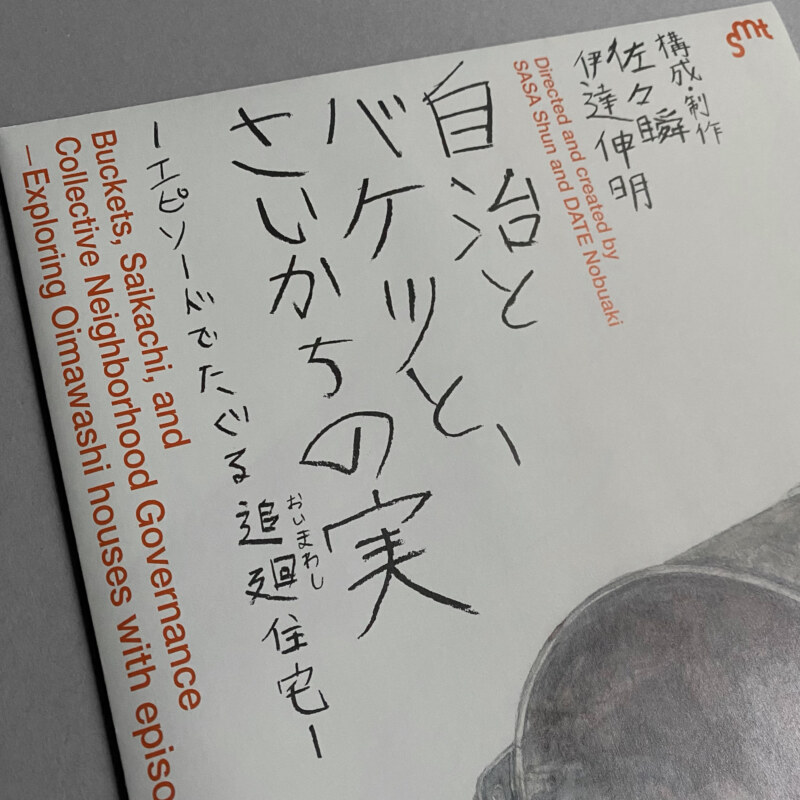 smt
構成・制作
佐々瞬
伊達伸明
Directed and created by
SASA Shun and DATE Nobuaki
自治と
バケツと、
さいかちの実
ーエピソードでたぐる追廻住宅ー
おいまわし
Buckets, Saikachi, and
Collective Neighborhood Governance
–Exploring Oimawashi houses with episo